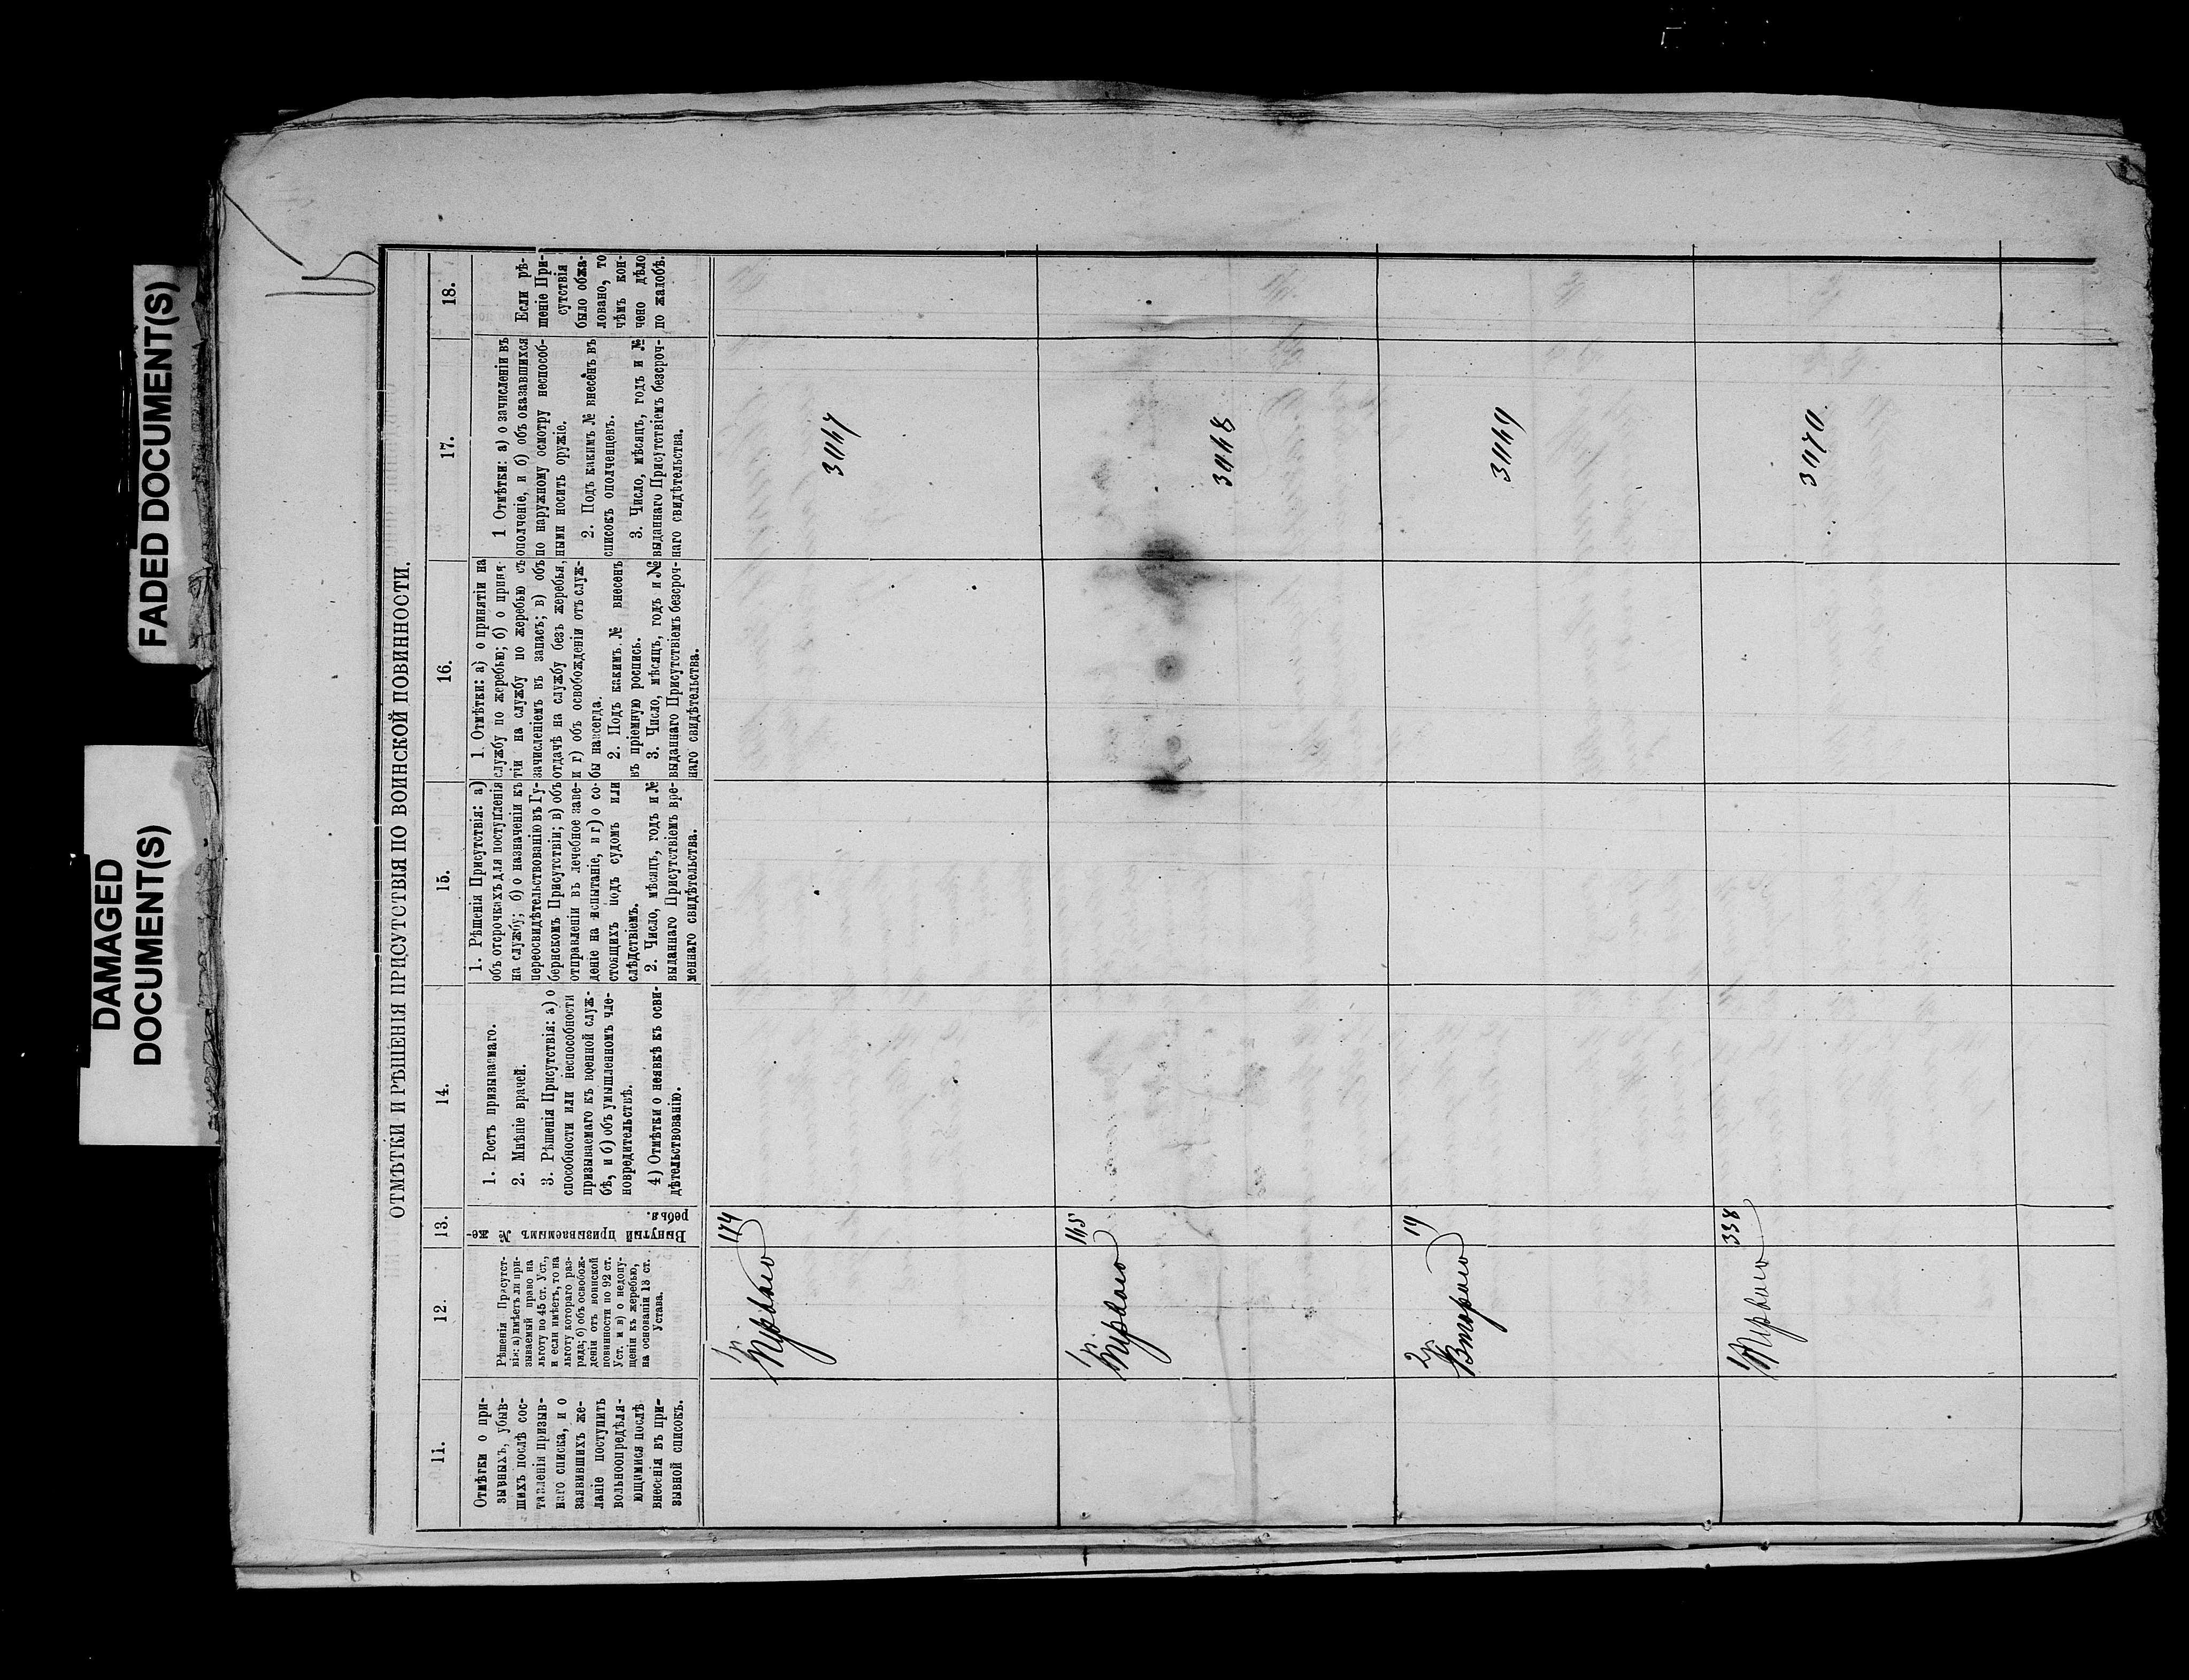 FADED DOCUMENT(S)
DAMAGED
DOCUMENT(S)
ОТМѢТКИ И РѢШЕНІЯ ПРИСУТСТВІЯ ПО ВОИНСКОЙ ПОВИННОСТИ.
11.
12.
13.
14.
15.
16.
17.
18.
Отмѣтки о при-
зывныхъ, убыв-
шихъ послѣ сос-
тавленія призыв-
наго списка, и о
заявившихъ же-
ланіе поступить
вольноопредѣля-
ющимися послѣ
внесенія въ при-
зывной списокъ.
Рѣшенія Присутст-
вія: а) имѣетъ ли при-
зываемый право на
льготу по 45 ст. Уст.,
и если имѣетъ, то на
льготу котораго раз-
ряда; б) объ освобож-
деніи отъ воинской
повинности по 92 ст.
Уст. и в) о недопу-
щеніи къ жеребью,
на основаніи 13 ст.
Устава.
Вынутый призываемымъ № же-
ребья.
1. Ростъ призываемаго.
2. Мнѣніе врачей.
3. Рѣшенія Присутствія: а) о
способности или неспособности
призываемаго къ военной служ-
бѣ, и б) объ умышленномъ чле-
новредительствѣ.
4) Отмѣтки о неявкѣ къ осви-
дѣтельствованію.
1. Рѣшенія Присутствія: а)
объ отсрочкахъ для поступленія
на службу; б) о назначеніи къ
переосвидѣтельствованію въ Гу-
бернскомъ Присутствіи; в) объ
отправленіи въ лечебное заве-
деніе на испытаніе, и г) о со-
стоящихъ подъ судомъ или
слѣдствіемъ.
2. Число, мѣсяцъ, годъ и №
выданнаго Присутствіемъ вре-
меннаго свидѣтельства.
1. Отмѣтки: а) о принятіи на
службу по жеребью; б) о приня-
тіи на службу по жеребью съ
зачисленіемъ въ запасъ; в) объ
отдачѣ на службу безъ жеребья,
и г) объ освобожденіи отъ служ-
бы навсегда.
2. Подъ какимъ № внесенъ
въ пріемную роспись.
3. Число, мѣсяцъ, годъ и №
выданнаго Присутствіемъ безсроч-
наго свидѣтельства.
1 Отмѣтки: а) о зачисленіи въ
ополченіе, и б) объ оказавшихся
по наружному осмотру неспособ-
ными носить оружіе.
2. Подъ какимъ № внесенъ въ
списокъ ополченцевъ.
3. Число, мѣсяцъ, годъ и №
выданнаго Присутствіемъ безсроч-
наго свидѣтельства.
Если рѣ-
шеніе При-
сутствія
было обжа-
ловано, то
чѣмъ кон-
чено дѣло
по жалобѣ.
1р
Перваго
174
1р
Перваго
3448
2р
Втораго
19
Перваго
338